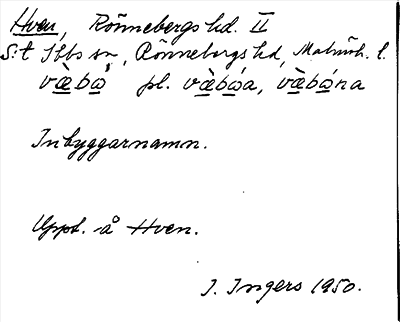 Hven, Rönnebergs hd. II
S:t Ibbs sn, Rönnebergs hd, Malmöh. l.
væ̀bω pl. væ̀bώa, væ̀bώna
Inbyggarnamn.
Uppt. å Hven.
I. Ingers 1950.